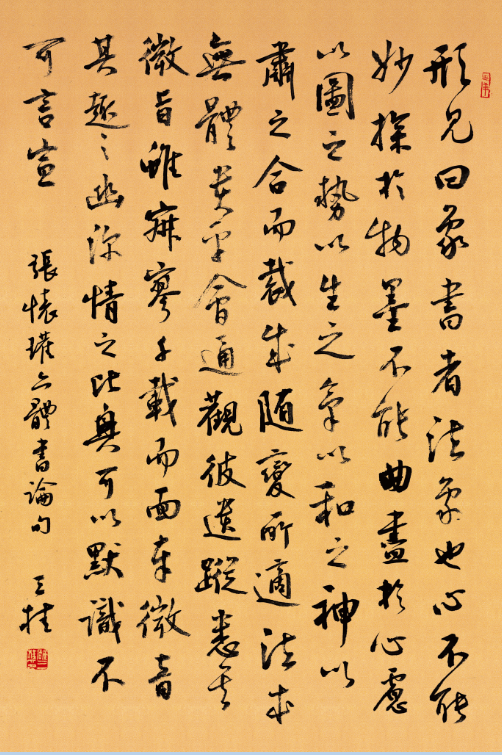 形見曰象書者法象也心不能
妙探於物墨不能曲盡於心慮
以圖之勢以生之氣以和之神以
肅之合而裁成随變所適法本
無體貴乎會通觀彼遺蹤悉其
微旨雖寂寥千載而面奉微音
其趣之幽深情之比興可以默識不
可言宣
張懷瓘六體書論句